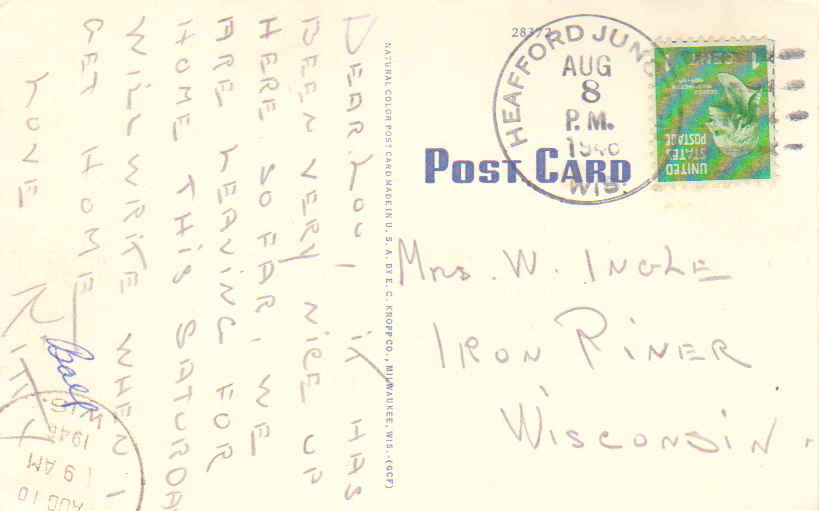 DEAR LOU, IT HAS
BEEN VERY NICE UP
HERE SO FAR, WE
ARE LEAVING FOR
HOME THIS SATURDAY
WILL WRITE WHEN I
GET HOME
LOVE
NATURAL COLOR POST CARD MADE IN U. S. A. BY E. C. KROPP CO., MILWAUKEE, WIS.-(GCF)
28372
POST CARD
HEAFFORD JUNC
AUG
8
P.M.
WIS.
1 CENT 1
UNITED
STATES
POSTAGE
MRS. W. INGLE
IRON RIVER
WISCONSIN.
AUG 10
9 AM
WIS